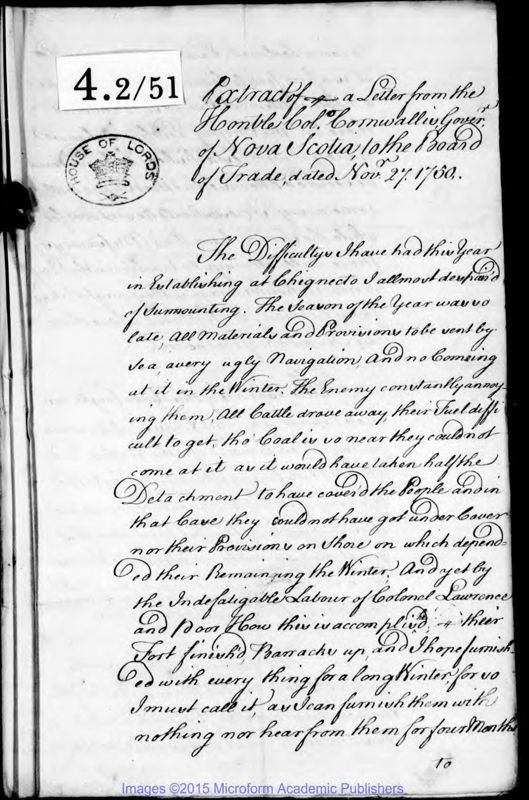 4.2/51
HOUSE OF LORDS
Extract of a Letter from the
Honble Col.o Cornwallis Gover.r
of Nova Scotia, to the Board
of Trade, dated Nov.r 27. 1750.
The Difficultys I have had this Year
in Establishing at Chignecto I allmost despair'd
of Surmounting. The Season of the Year was so
late, All Materials and Provisions to be sent by
Sea, a very ugly Navigation, And no Comeing
at it in the Winter, The Enemy constantly annoy-
ing them, All Cattle drove away, their Fuel diffi
cult to get, tho' Coal is so near they could not
come at it as it would have taken half the
Detachment to have cover'd the People and in
that Case they could not have got under Cover
nor their Provisions on Shore on which depend=
ed their Remaining the Winter, And yet by
the Indefatigable Labour of Colonel Lawrence
and Poor How this is accomplish'd, their
Fort finish'd, Barracks up, and I hope furnish
ed with every thing for a long Winter, for so
I must call it as I can furnish them with
nothing nor hear from them for four Months
to
Images ©2015 Microform Academic Publishers